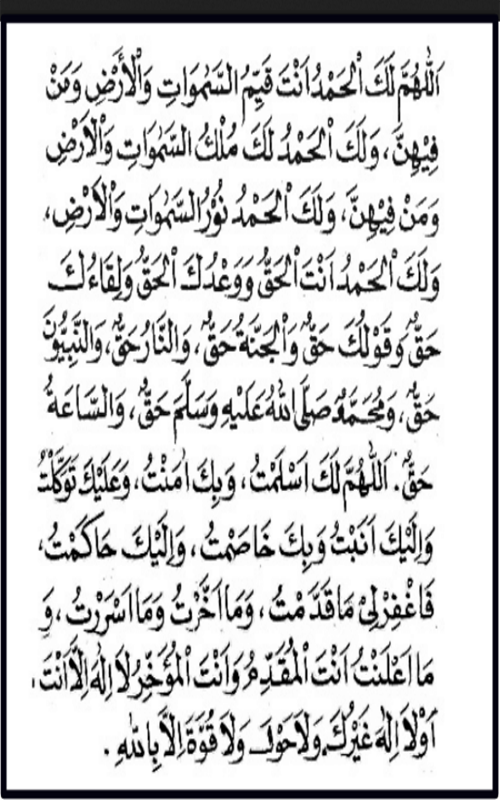 اَللّٰهُمَّ لَكَ الْحَمْدُ اَنْتَ قَيِّمُ السَّمٰوَاتِ وَالْأَرْضِ وَمَنْ
فِيْهِنَّ، وَلَكَ الْحَمْدُ لَكَ مُلْكُ السَّمٰوَاتِ وَالْاَرْضِ
وَمَنْ فِيْهِنَّ، وَلَكَ الْحَمْدُ نُوْرُ السَّمٰوَاتِ وَالْاَرْضِ،
وَلَكَ الْحَمْدُ اَنْتَ الْحَقُّ وَوَعْدُكَ الْحَقُّ وَلِقَاءُكَ
حَقٌّ وَقَوْلُكَ حَقٌّ وَالْجَنَّةُ حَقٌّ، وَالنَّارُ حَقٌّ، وَالنَّبِيُّوْنَ
حَقٌّ، وَمُحَمَّدٌ صَلَّى اللهُ عَلَيْهِ وَسَلَّمَ حَقٌّ، وَالسَّاعَةُ
حَقٌّ. اَللّٰهُمَّ لَكَ اَسْلَمْتُ، وَبِكَ اٰمَنْتُ، وَعَلَيْكَ تَوَكَّلْتُ
وَاِلَيْكَ اَنَبْتُ وَبِكَ خَاصَمْتُ، وَاِلَيْكَ حَاكَمْتُ،
فَاغْفِرْلِيْ مَاقَدَّمْتُ، وَمَا اَخَّرْتُ وَمَا اَسْرَرْتُ، وَ
مَا اَعْلَنْتُ اَنْتَ الْمُقَدِّمُ وَاَنْتَ الْمُؤَخِّرُ لَا اِلٰهَ اِلَّا اَنْتَ،
اَوْلَا اِلٰهَ غَيْرُكَ وَلَا حَوْلَ وَلَا قُوَّةَ اِلَّا بِاللهِ.